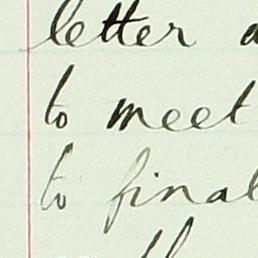 letter a
to meet
to final